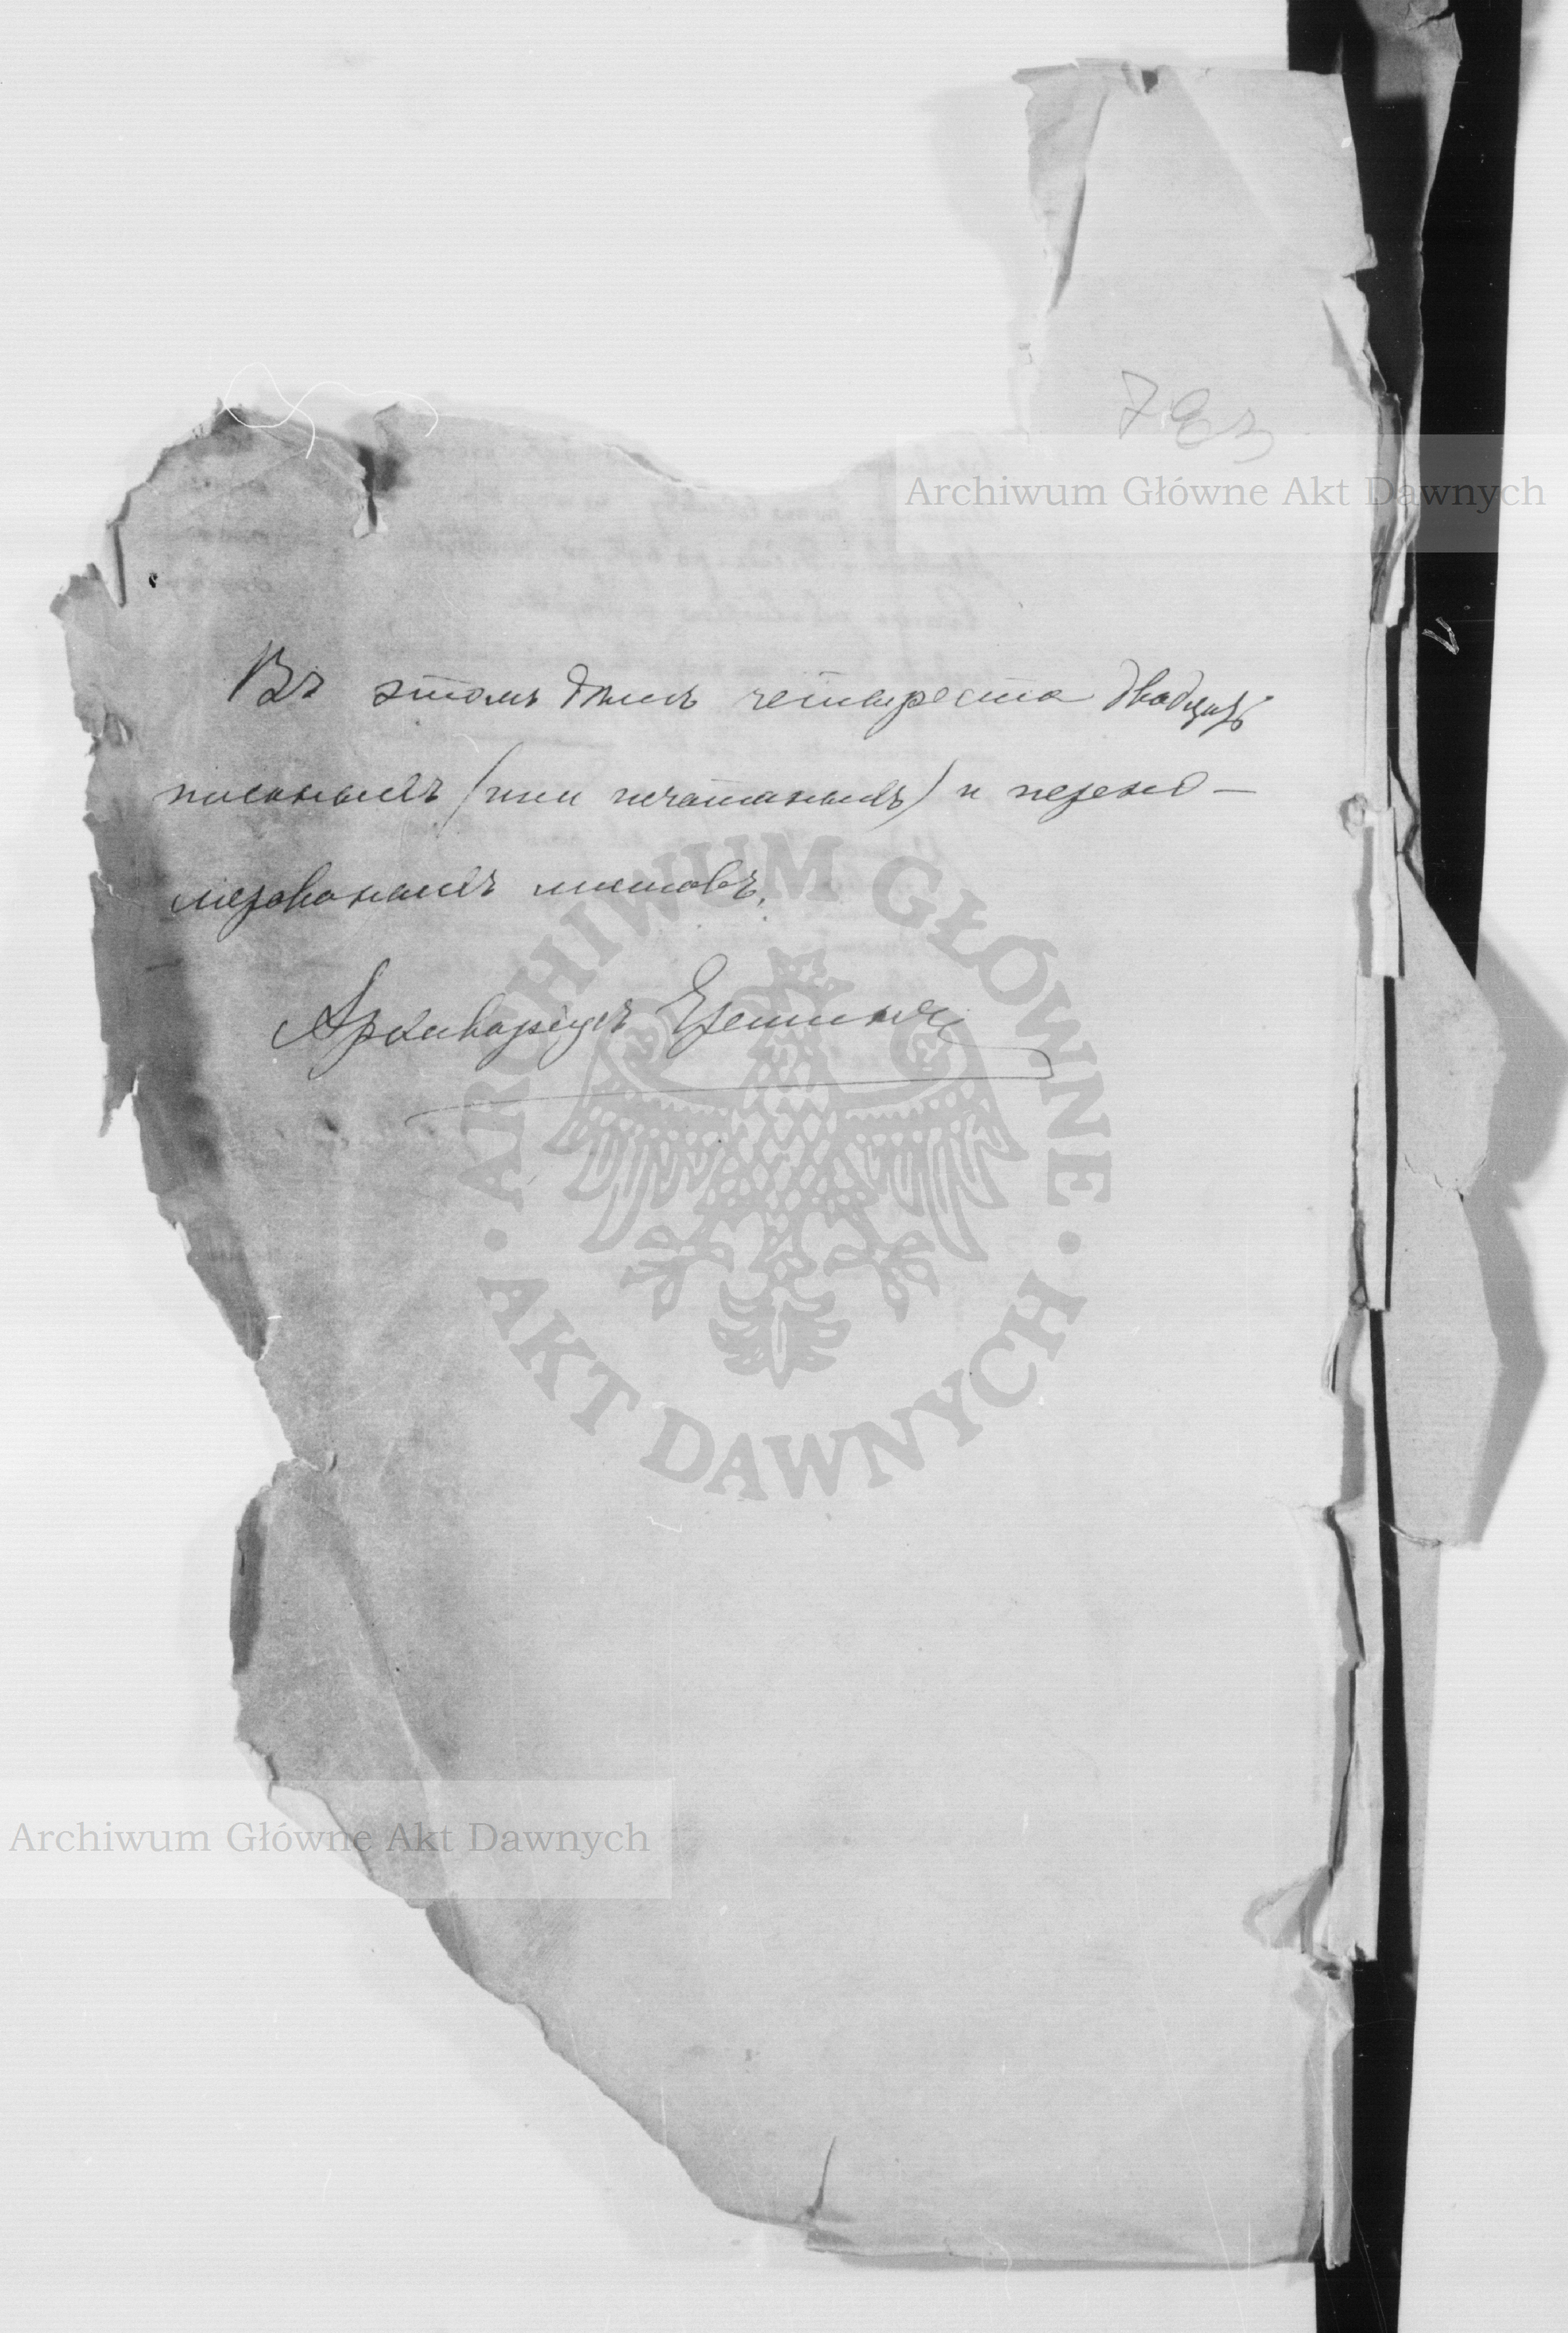 783
Archiwum Główne Akt Dawnych
Въ этомъ дѣлѣ четыреста двадцать
писанныхъ (или печатаныхъ) и перено-
мерованныхъ листовъ.
Архиваріусъ
ARCHIWUM GŁÓWNE
AKT DAWNYCH
Archiwum Główne Akt Dawnych